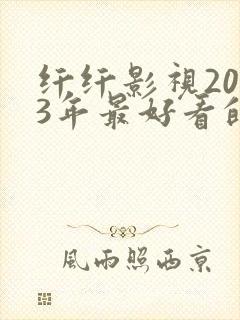 纤纤影視20
3年最好看的
風雨照西京